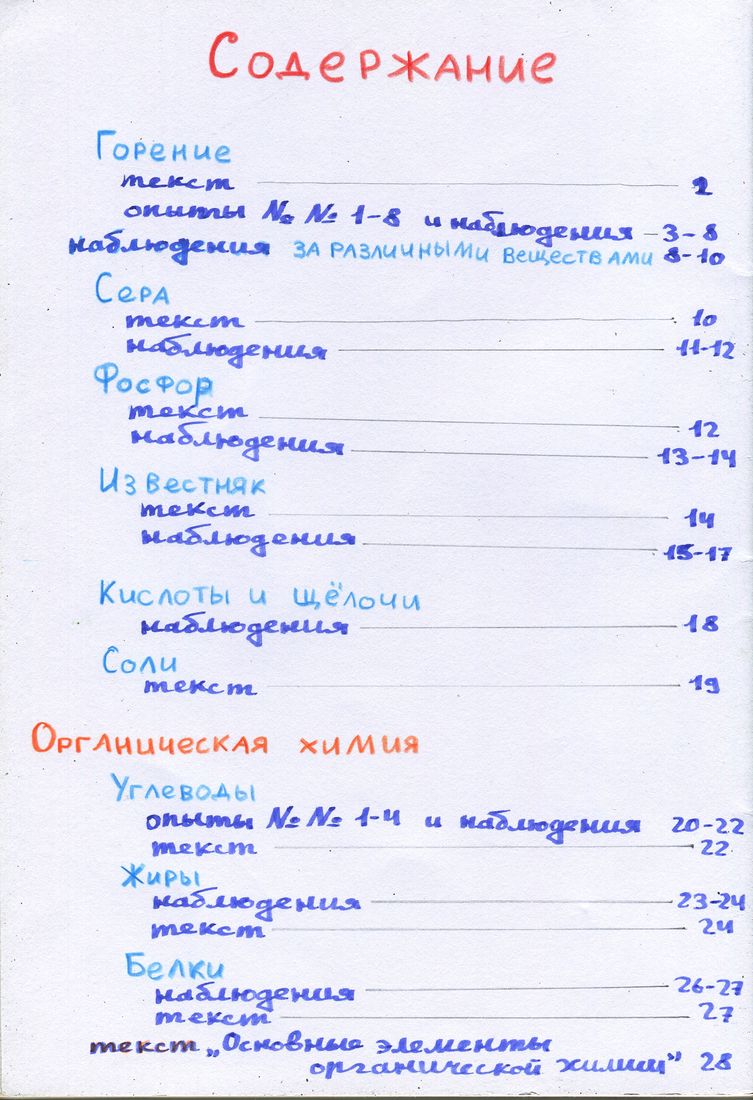 Содержание
Горение
текст 2
опыты №№ 1-8 и наблюдения 3-8
наблюдения за различными веществами 8-10
Сера
текст 10
наблюдения 11-12
Фосфор
текст 12
наблюдения 13-14
Известняк
текст 14
наблюдения 15-17
Кислоты и щёлочи
наблюдения 18
Соли
текст 19
Органическая химия
Углеводы
опыты №№ 1-4 и наблюдения 20-22
текст 22
Жиры
наблюдения 23-24
текст 24
Белки
наблюдения 26-27
текст 27
текст „Основные элементы
органической химии" 28